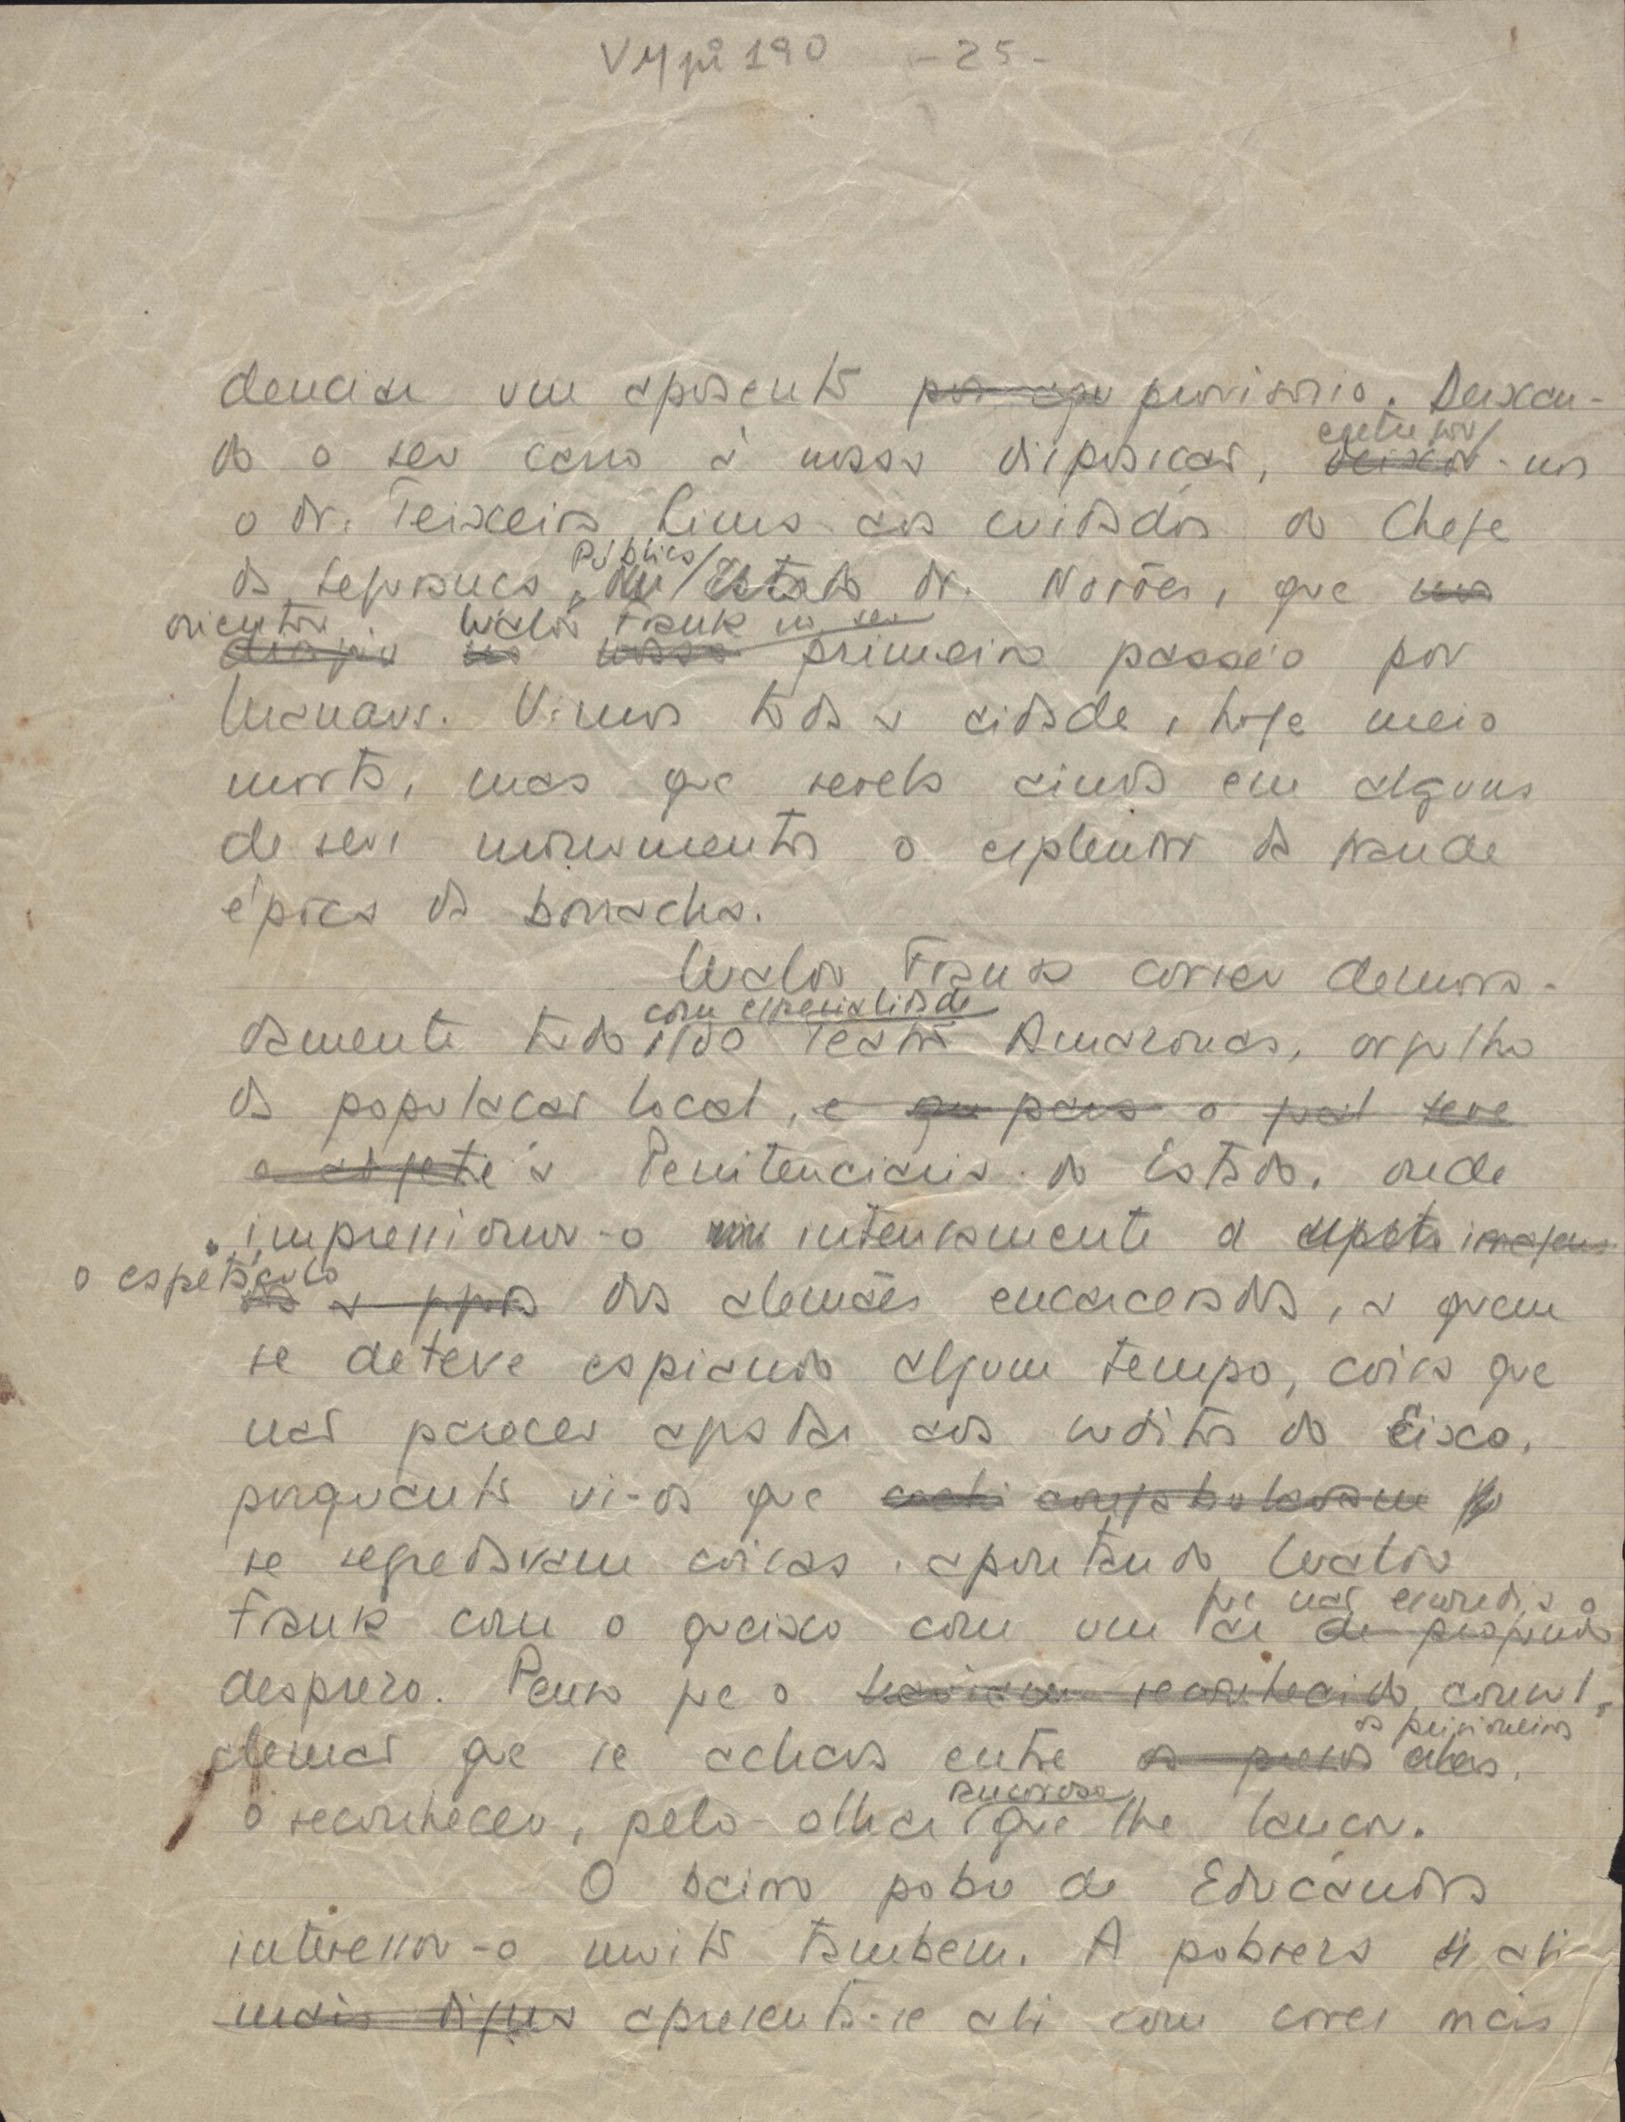 VMpi 190 -25-
dencia um aposento por provisorio. Deixan-
do o seu carro à nossa disposicão, entregou/ deixou-nos
o dr. Teixeira aos cuidados do Chefe
da segurança Publica/ do Estado dr. Norões, que nos
orientou Waldo Frank no seu
dirigiu no nosso primeiro passeio por
Manaus. Vimos toda a cidade, hoje meio
morta, mas que revela ainda em alguns
de seus monumentos o esplendor da grande
época da borracha.
Waldo Frank correu demora-
damente tudo com especialidade o Teatro Amazonas, orgulho
da populacão local, e que para o qual teve
e à Penitenciaria do Estado, onde
impressionou-o intensamente a imagem
o espetáculo dos alemães encarcerados, a quem
se deteve espiando algum tempo, coisa que
não pareceu agradar aos suditos do Eixo,
porquanto vi-os que
se segredavam coisas, apontando Waldo
Frank com o queixo com um ar que não escondia o de profundo
desprezo. Penso que o haviam reconhecido consul
alemão que se achava entre os prisioneiros os presos
o reconheceu, pelo olhar rancoroso que lhe lançou.
O bairro pobre de Educandos
interessou-o muito tambem. A pobreza ali
mais digna apresenta-se ali com cores mais